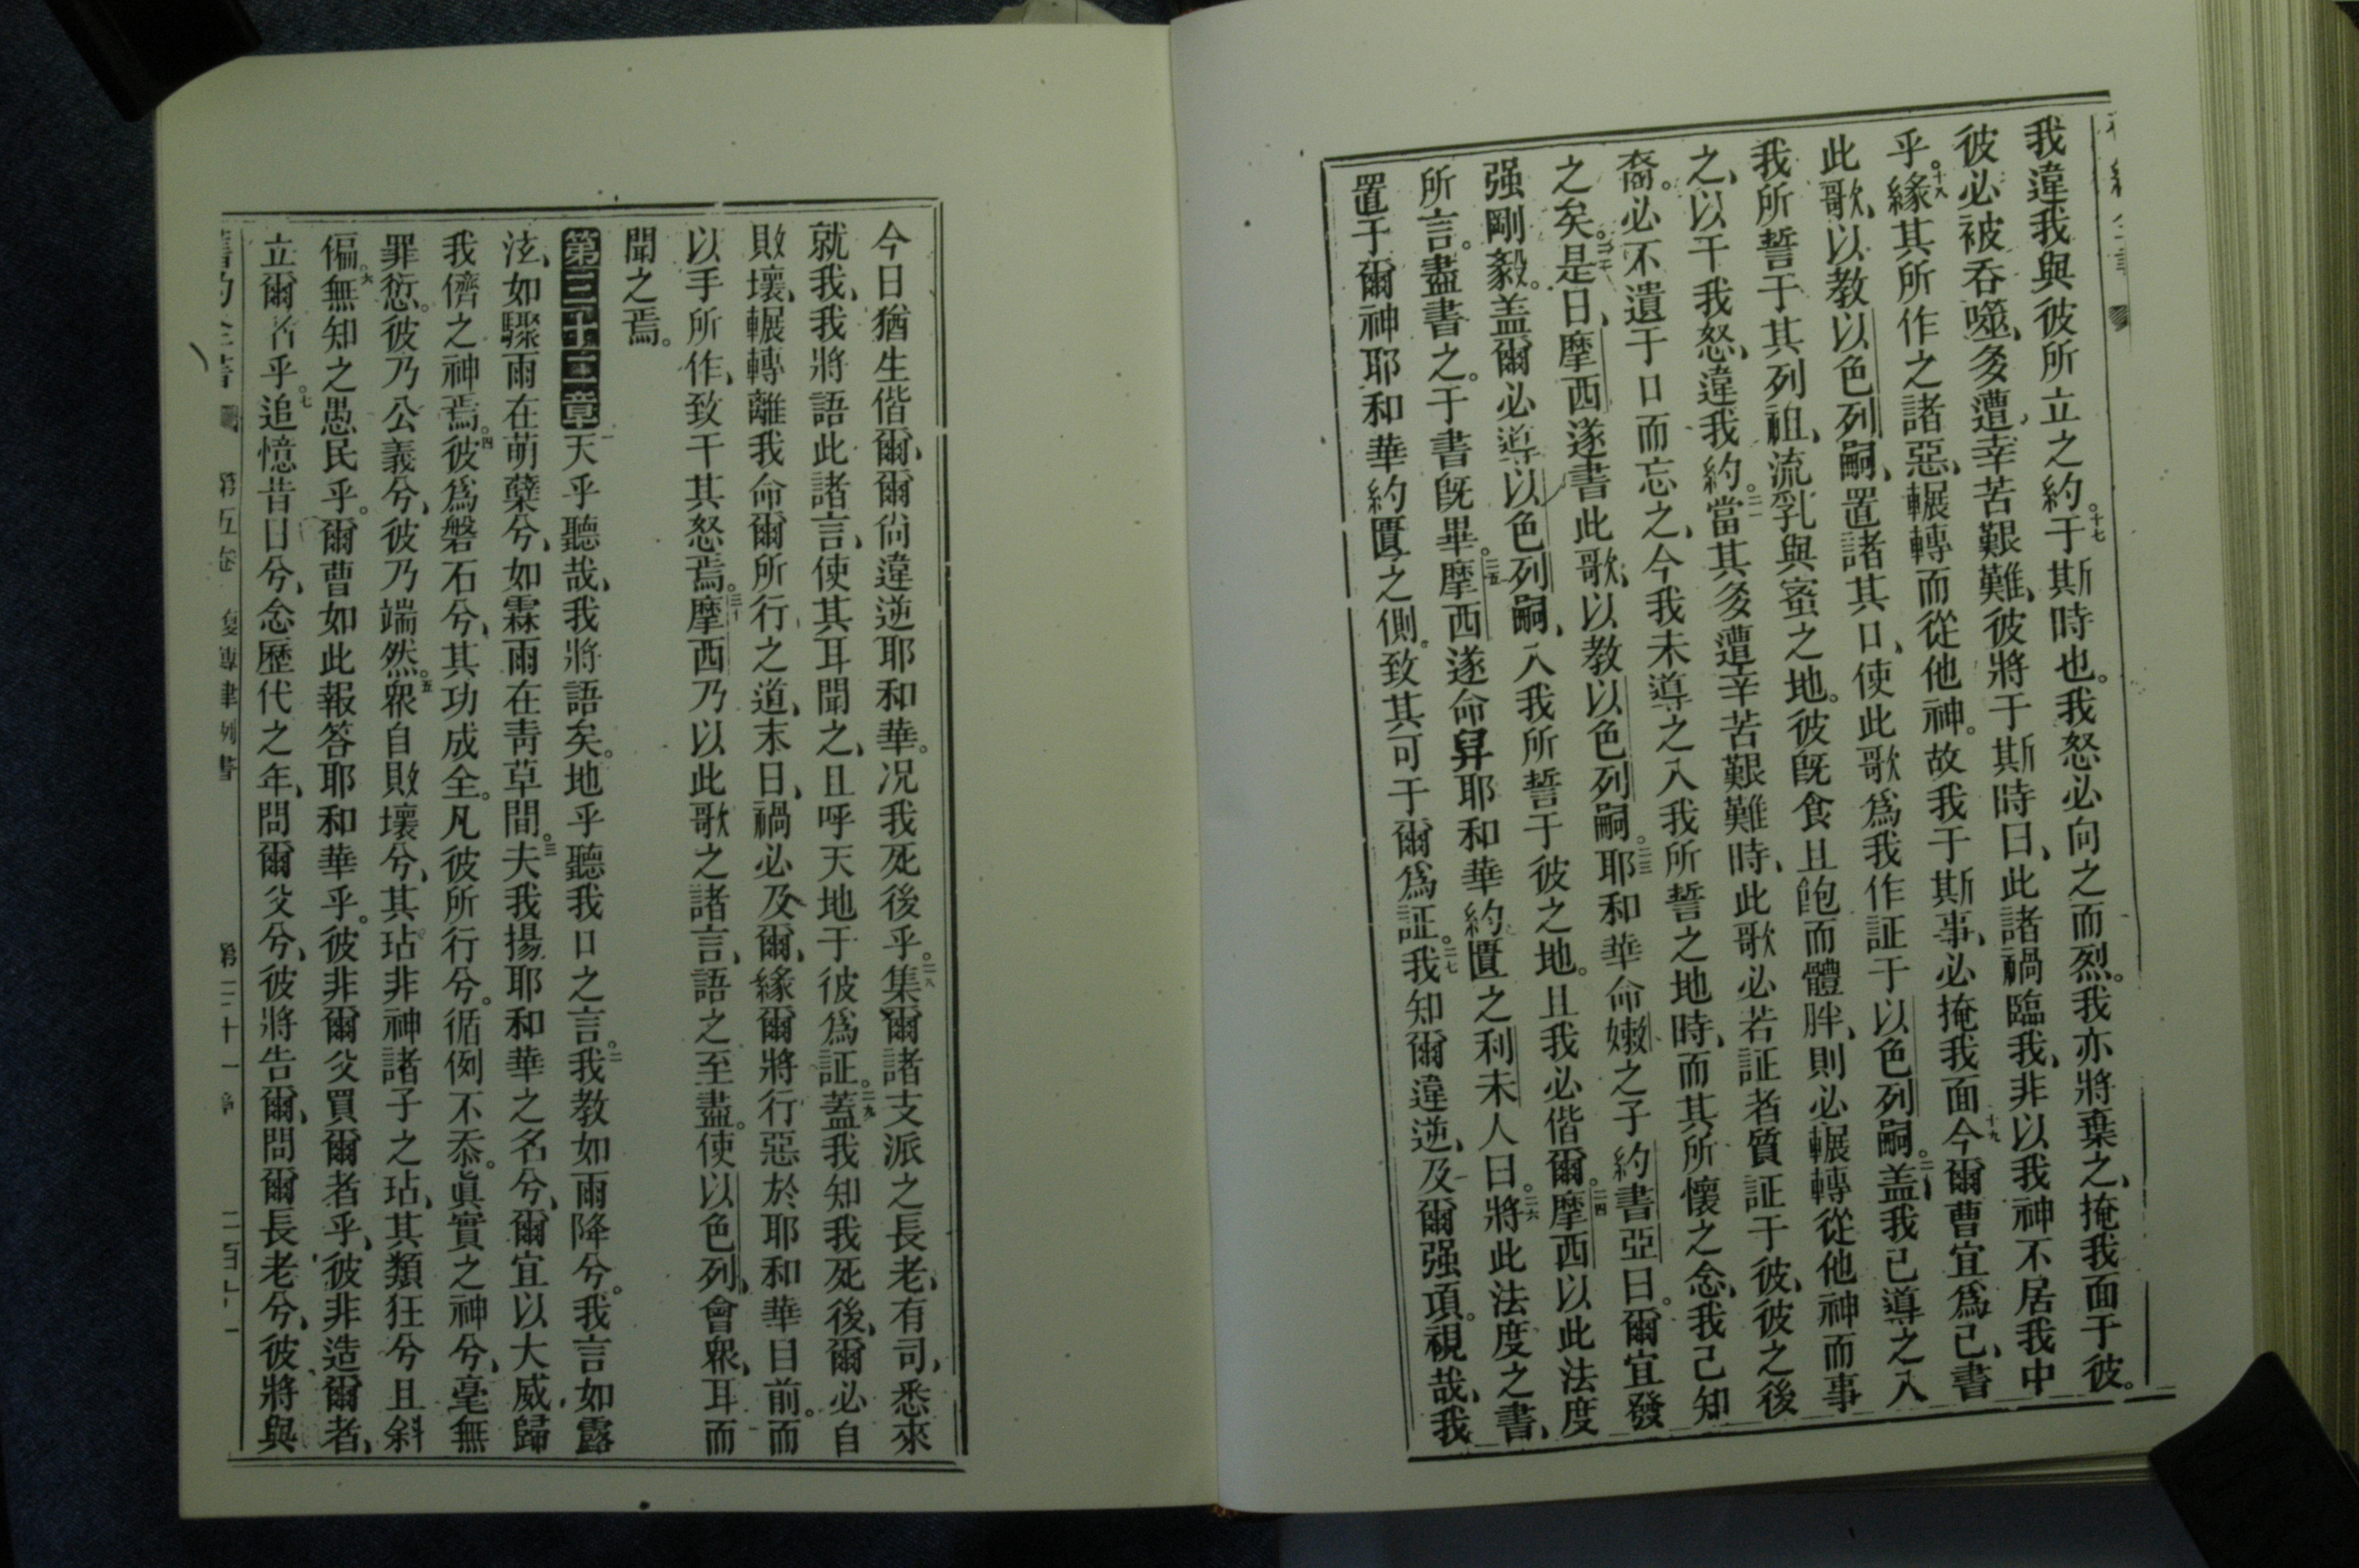 我違我與彼所立之約。十七于斯時也。我怒必向之而烈。我亦將棄之、掩我面于彼。
彼必被吞噬、多遭幸苦艱難、彼將于斯時曰、此諸禍臨我、非以我神不居我中
乎。十八緣其所作之諸惡、輾轉而從他神。故我于斯事、必掩我面十九今爾曹宜爲己、書
此歌、以教以色列嗣、置諸其口、使此歌爲我作証于以色列嗣。二十盖我已導之入
我所誓于其列祖、流乳與蜜之地。彼旣食且飽而體胖、則必輾轉從他神而事
之、以干我怒、違我約。二一當其多遭辛苦艱難時、此歌必若証者質証于彼、彼之後
裔。必不遺于口而忘之、今我未導之入我所誓之地時、而其所懷之念、我已知
之矣。二二是日、摩西遂書此歌、以教以色列嗣。二三耶和華命嫩之子約書亞曰。爾宜發
强剛毅。盖爾必導以色列嗣、入我所誓于彼之地。且我必偕爾。二四摩西以此法度
所言。盡書之。于書旣畢。二五摩西遂命舁耶和華約匱之利未人曰。二六將此法度之書、
置于爾神耶和華約匱之側。致其可于爾爲証。二七我知爾違逆、及爾强項。視哉、我
今日猶生偕爾、爾尙違逆耶和華。况我死後乎。二八集爾諸支派之長老、有司、悉來
就我、我將語此諸言、使其耳聞之、且呼天地于彼爲証。二九蓋我知我死後、爾必自
敗壞、輾轉離我命爾所行之道、末日、禍必及爾、緣爾將行惡於耶和華目前。而
以手所作、致干其怒焉。三十摩西乃以此歌之諸言、語之至盡。使以色列、會衆、耳而
聞之焉。
第三十二章一天乎聽哉、我將語矣。地乎聽我口之言。二我教如雨降兮。我言如露
泫、如驟雨在萌蘖兮、如霖雨在靑草間。三夫我揚耶和華之名兮、爾宜以大威歸
我儕之神焉。四彼爲磐石兮、其功成全。凡彼所行兮。循例不忝。眞實之神兮、毫無
罪愆。彼乃公義兮、彼乃端然。五衆自敗壞兮、其玷非神諸子之玷、其類狂兮且斜
徧。六無知之愚民乎。爾曹如此報答耶和華乎。彼非爾父買爾者乎、彼非造爾者、
立爾者乎。七追憶昔日兮、念歷代之年、問爾父兮、彼將告爾、問爾長老兮、彼將與
第五卷 復傳律例書 第三十一章